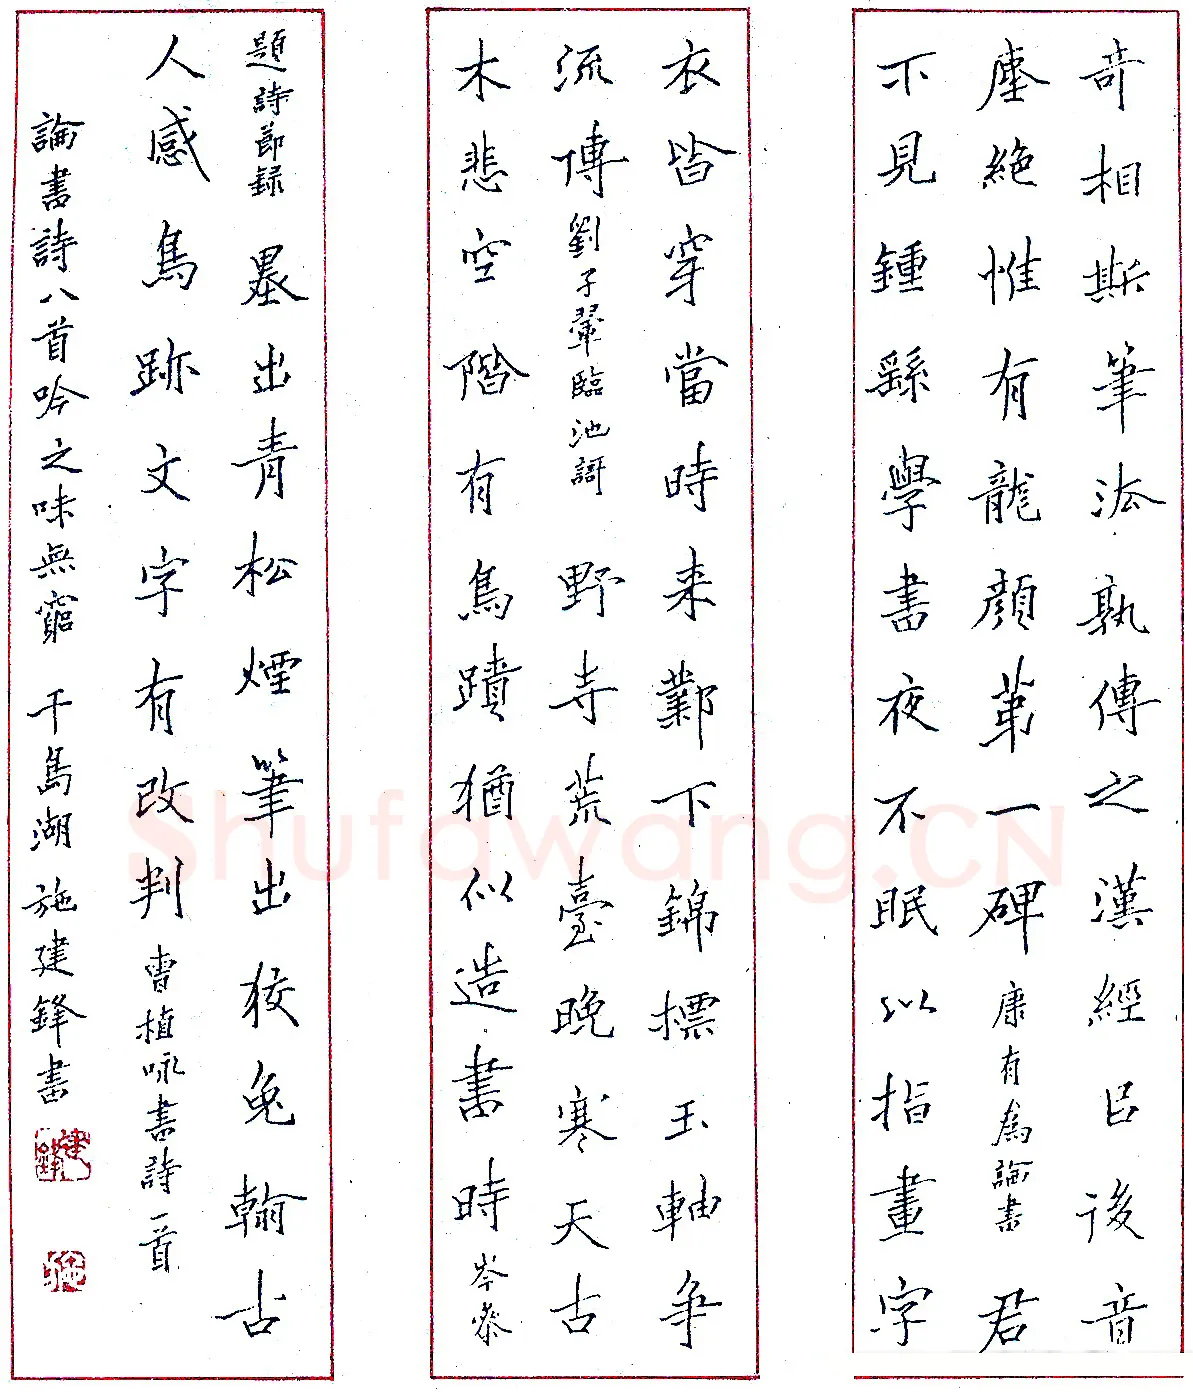 奇相斯筆法孰傳之漢經㠯後音
塵絶惟有龍顔苐一碑康有為論書君
不見鍾繇學書夜不眠以指畫字
衣皆穿當時来鄴下錦標玉軸争
流傳劉子翬臨池謌野寺荒臺晚寒天古
木悲空階有鳥蹟猶似造書時岑參
題詩節録墨出青松煙筆出狡兔翰古
人感鳥跡文字有改判曹植咏書詩一首
論書詩八首吟之味無窮 千島湖施建鋒書
建鋒
施
Shufawang.CN